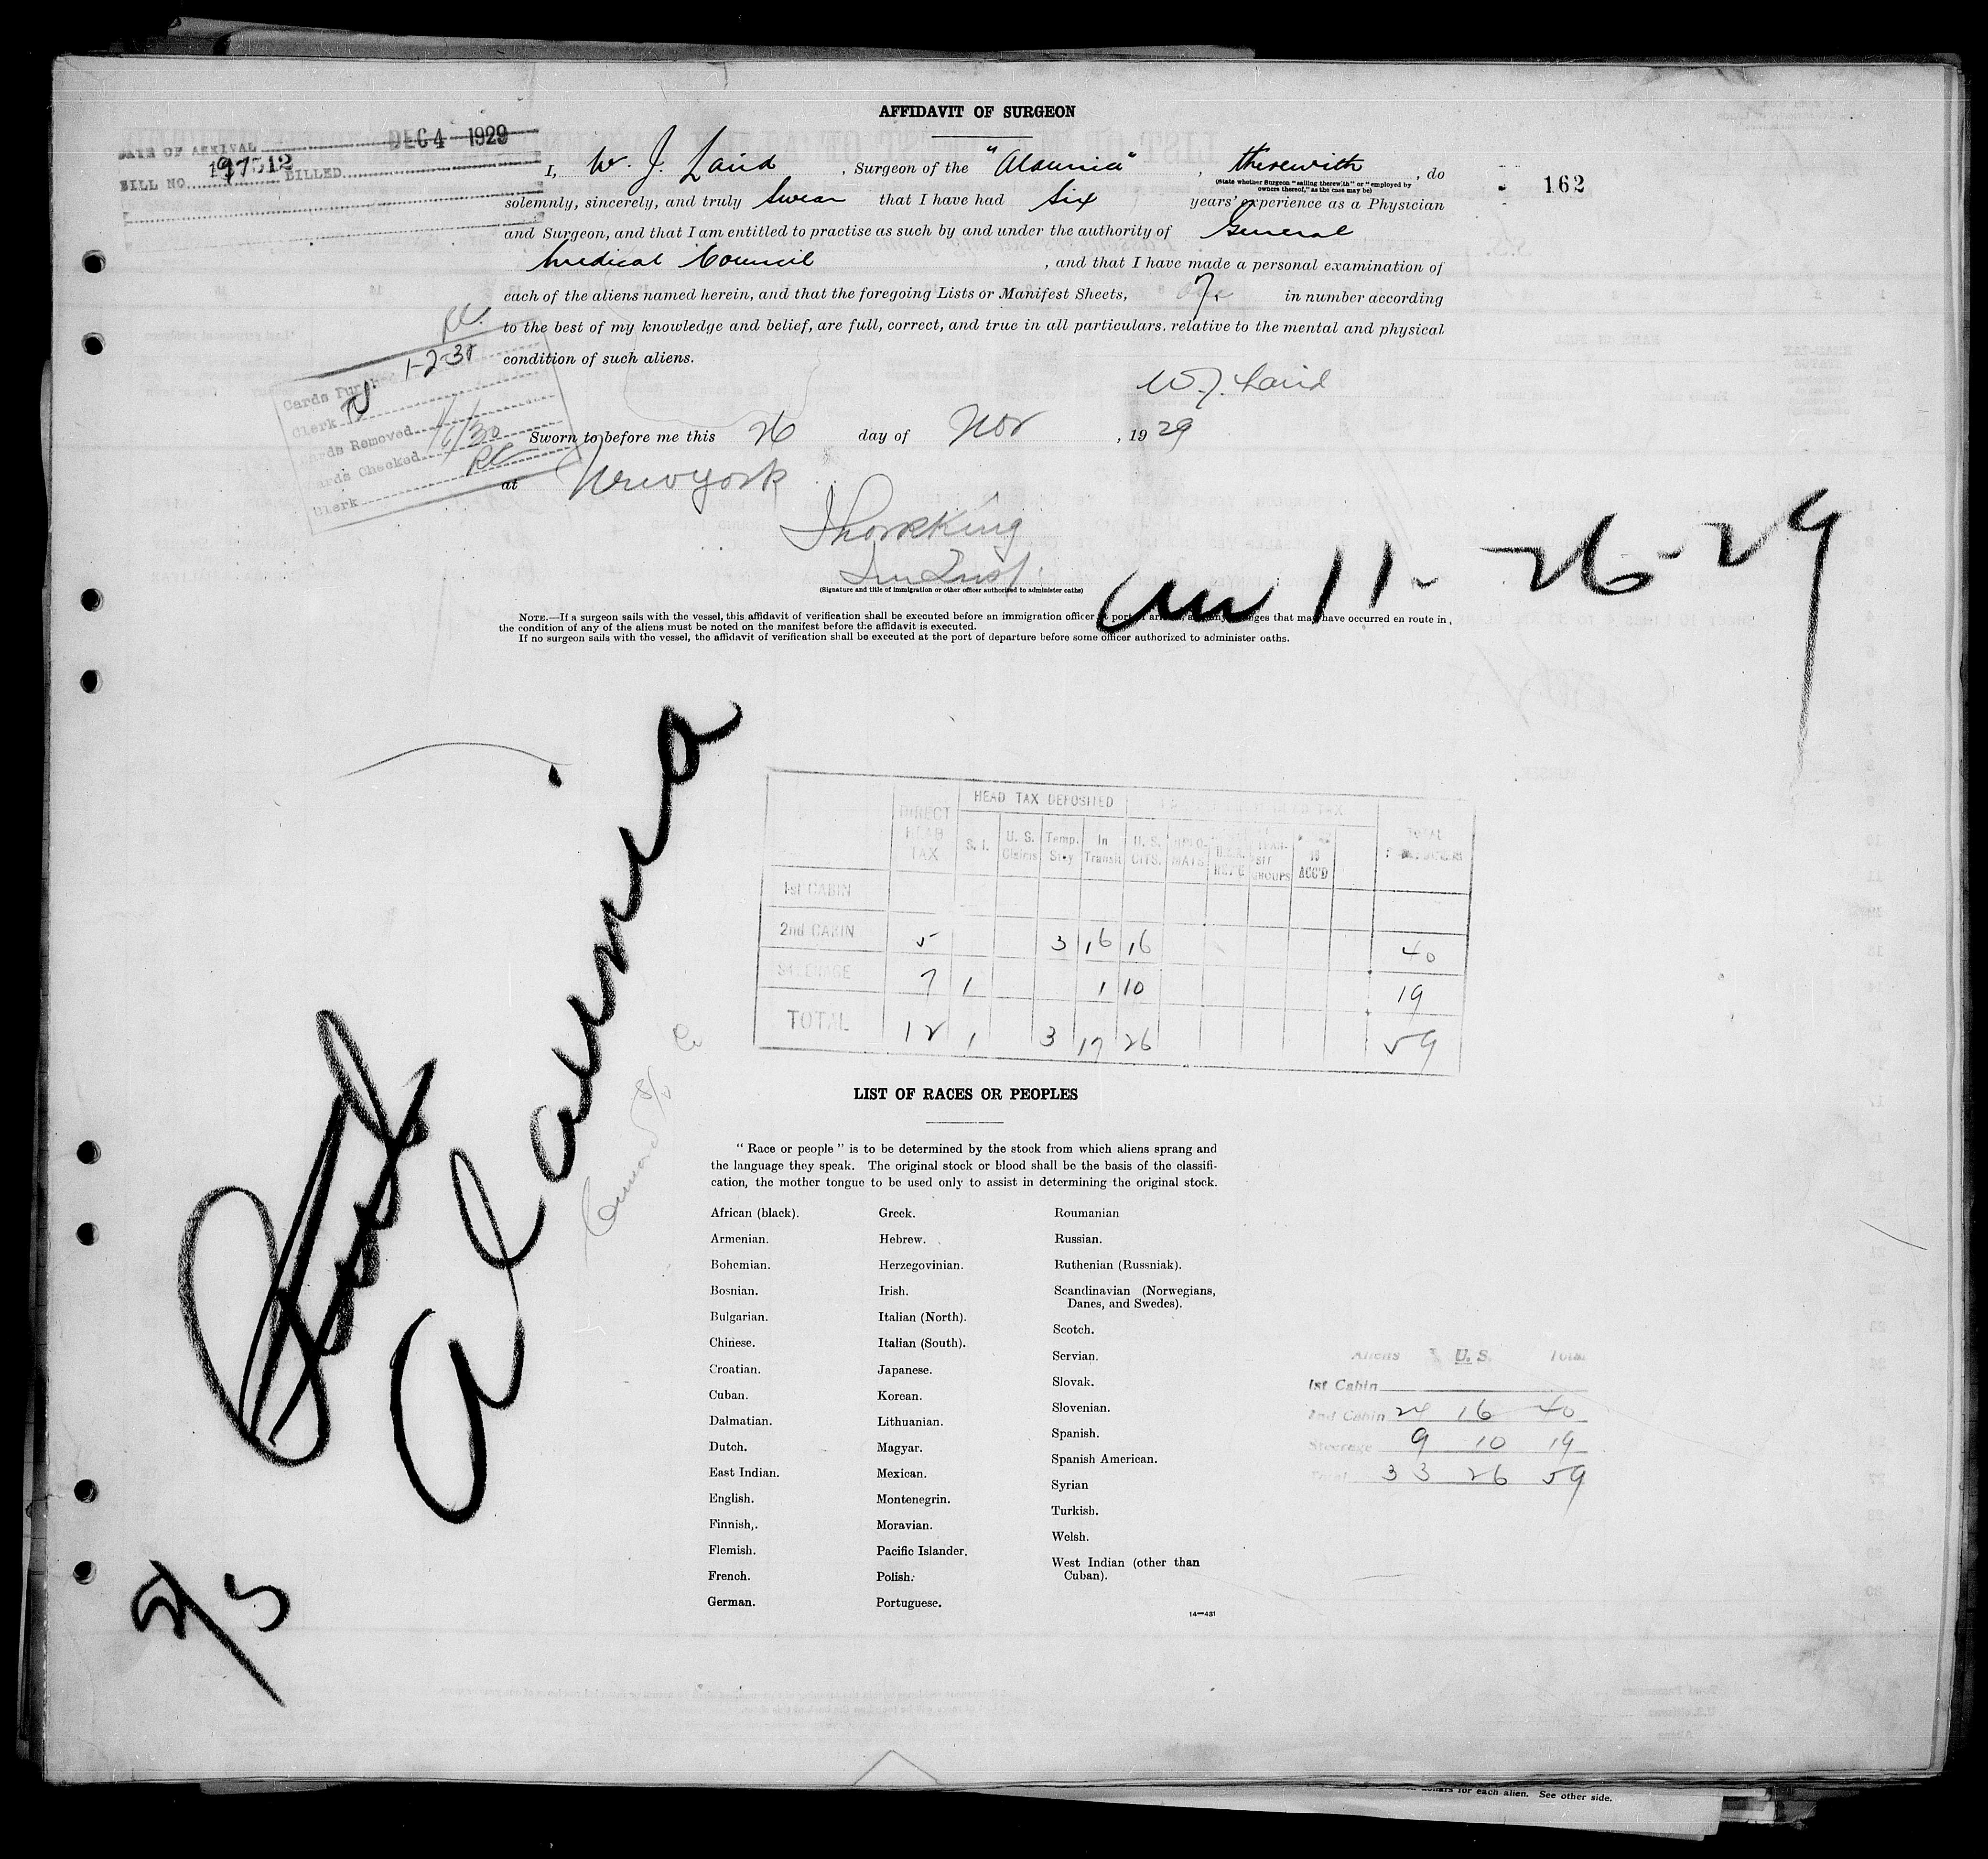 AFFIDAVIT OF SURGEON
DATE OF ARRIVAL DEC 4 1929
BILL NO. 197512 BILLED
162
I, W. J. Laird, Surgeon of the "Alaunia", therewith, do
(State whether Surgeon "sailing therewith" or "employed by owners thereof," as the case may be)
solemnly, sincerely, and truly swear that I have had Six years' experience as a Physician
and Surgeon, and that I am entitled to practise as such by and under the authority of General
Medical Council, and that I have made a personal examination of
each of the aliens named herein, and that the foregoing Lists or Manifest Sheets, 7 in number according
to the best of my knowledge and belief, are full, correct, and true in all particulars. relative to the mental and physical
condition of such aliens.
W. J. Laird
1-2-30
Cards Furn
Clerk
Cards Removed 1/6/30
Cards Checked
Clerk
Sworn to before me this 26 day of Nov, 1929
at New york
(Signature and title of immigration or other officer authorized to administer oaths)
11-26-29
NOTE.—If a surgeon sails with the vessel, this affidavit of verification shall be executed before an immigration officer at port of arrival, and any changes that may have occurred en route in
the condition of any of the aliens must be noted on the manifest before the affidavit is executed.
If no surgeon sails with the vessel, the affidavit of verification shall be executed at the port of departure before some officer authorized to administer oaths.
Alaunia
DIRECT HEAD TAX
HEAD TAX DEPOSITED
S. I. U. S. Claims Temp. Stay In Transit U. S. CITS.
TOTAL
1st CABIN
2nd CABIN 5 3 16 16 40
STEERAGE 7 1 1 10 19
TOTAL 12 1 3 17 26 59
LIST OF RACES OR PEOPLES
" Race or people " is to be determined by the stock from which aliens sprang and
the language they speak. The original stock or blood shall be the basis of the classifi-
cation, the mother tongue to be used only to assist in determining the original stock.
African (black).
Armenian.
Bohemian.
Bosnian.
Bulgarian.
Chinese.
Croatian.
Cuban.
Dalmatian.
Dutch.
East Indian.
English.
Finnish,.
Flemish.
French.
German.
Greek.
Hebrew.
Herzegovinian.
Irish.
Italian (North).
Italian (South).
Japanese.
Korean.
Lithuanian.
Magyar.
Mexican.
Montenegrin.
Moravian.
Pacific Islander.
Polish.
Portuguese.
Roumanian
Russian.
Ruthenian (Russniak).
Scandinavian (Norwegians,
Danes, and Swedes).
Scotch.
Servian.
Slovak.
Slovenian.
Spanish.
Spanish American.
Syrian
Turkish.
Welsh.
West Indian (other than
Cuban).
14—431
Aliens U. S. Total
1st Cabin
2nd Cabin 24 16 40
Steerage 9 10 19
Total 33 26 59
dollars for each alien. See other side.